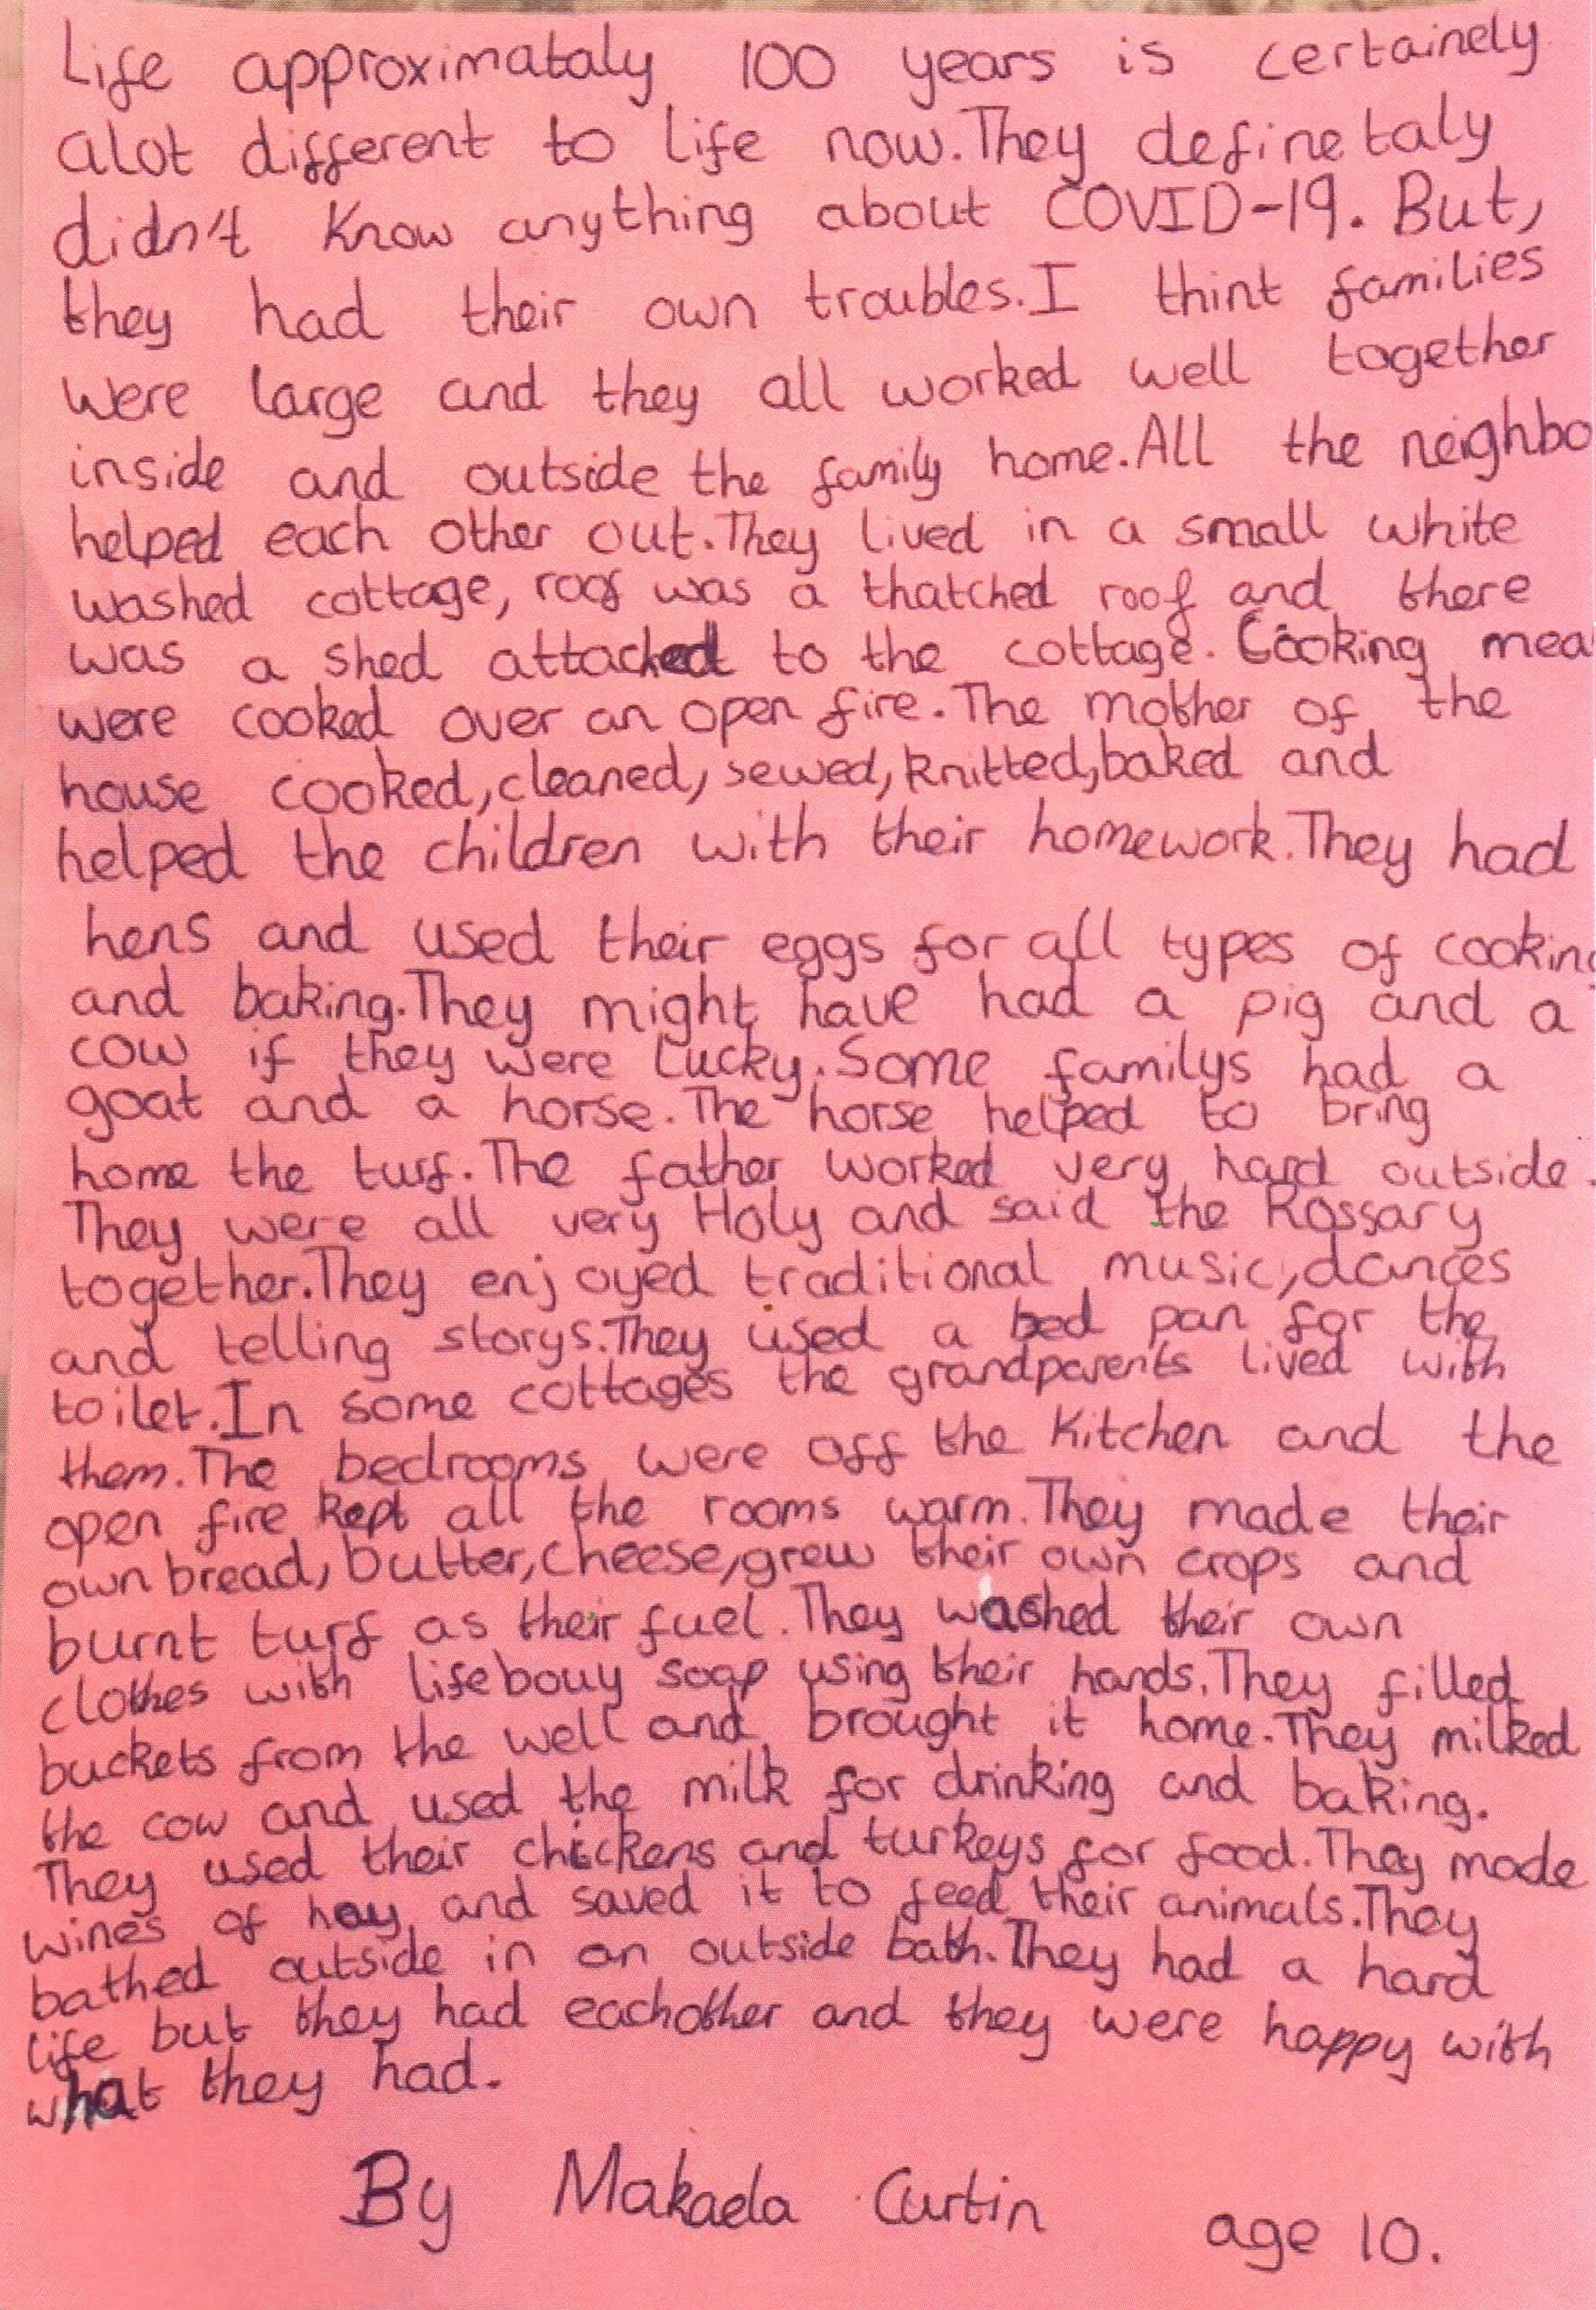 Life approximataly 100 years is certainely
alot different to life now. They definetaly
didn't know anything about COVID-19. But,
they had their own troubles. I thint families
were large and they all worked well together
inside and outside the family home. All the neighbo
helped each other out. They lived in a small white
washed cottage, roof was a thatched roof and there
was a shed attached to the cottage. Cooking mea
were cooked over an open fire. The mother of the
house cooked, cleaned, sewed, knitted, baked and
helped the children with their homework. They had
hens and used their eggs for all types of cooking
and baking. They might have had a pig and a
cow if they were lucky. Some familys had a
goat and a horse. The horse helped to bring
home the turf. The father worked very hard outside.
They were all very Holy and said the Rossary
together. They enjoyed traditional music, dances
and telling storys. They used a bed pan for the
toilet. In some cottages the grandparents lived with
them. The bedrooms were off the kitchen and the
open fire kept all the rooms warm. They made their
own bread, butter, cheese, grew their own crops and
burnt turf as their fuel. They washed their own
clothes with lifebouy soap using their hands. They filled
buckets from the well and brought it home. They milked
the cow and used the milk for drinking and baking.
They used their chickens and turkeys for food. They made
wines of hay and saved it to feed their animals. They
bathed outside in an outside bath. They had a hard
life but they had eachother and they were happy with
what they had.
By Makaela Curtin age 10.